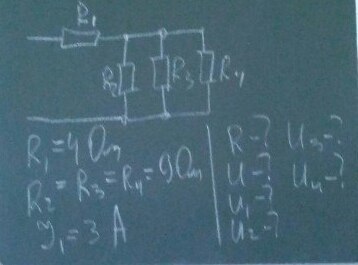 R₁
R₂ R₃ R₄
R₁=4 Ом
R₂=R₃=R₄=9 Ом
J₁=3 А
R-? U₃-?
U-? U₄-?
U₁-?
U₂-?